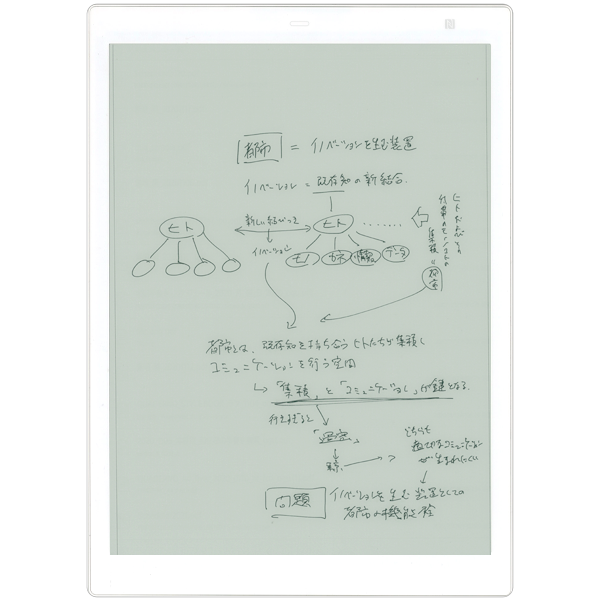 都市 = イノベーションを生む装置
イノベーション = 既存知の新結合
新しい結びつき
イノベーション
ヒト
ヒト ........
モノ カネ 情報 データ
ヒトおよび
集積 =
都市とは、既存知を持ち合うヒトたちが集積し
コミュニケーションを行う空間
↳ 「集積」と「コミュニケーション」が鍵となる
行きすぎると
「過密」
どちらも
適切なコミュニケーション
が生まれにくい
問題 イノベーションを生む装置としての
都市の機能不全